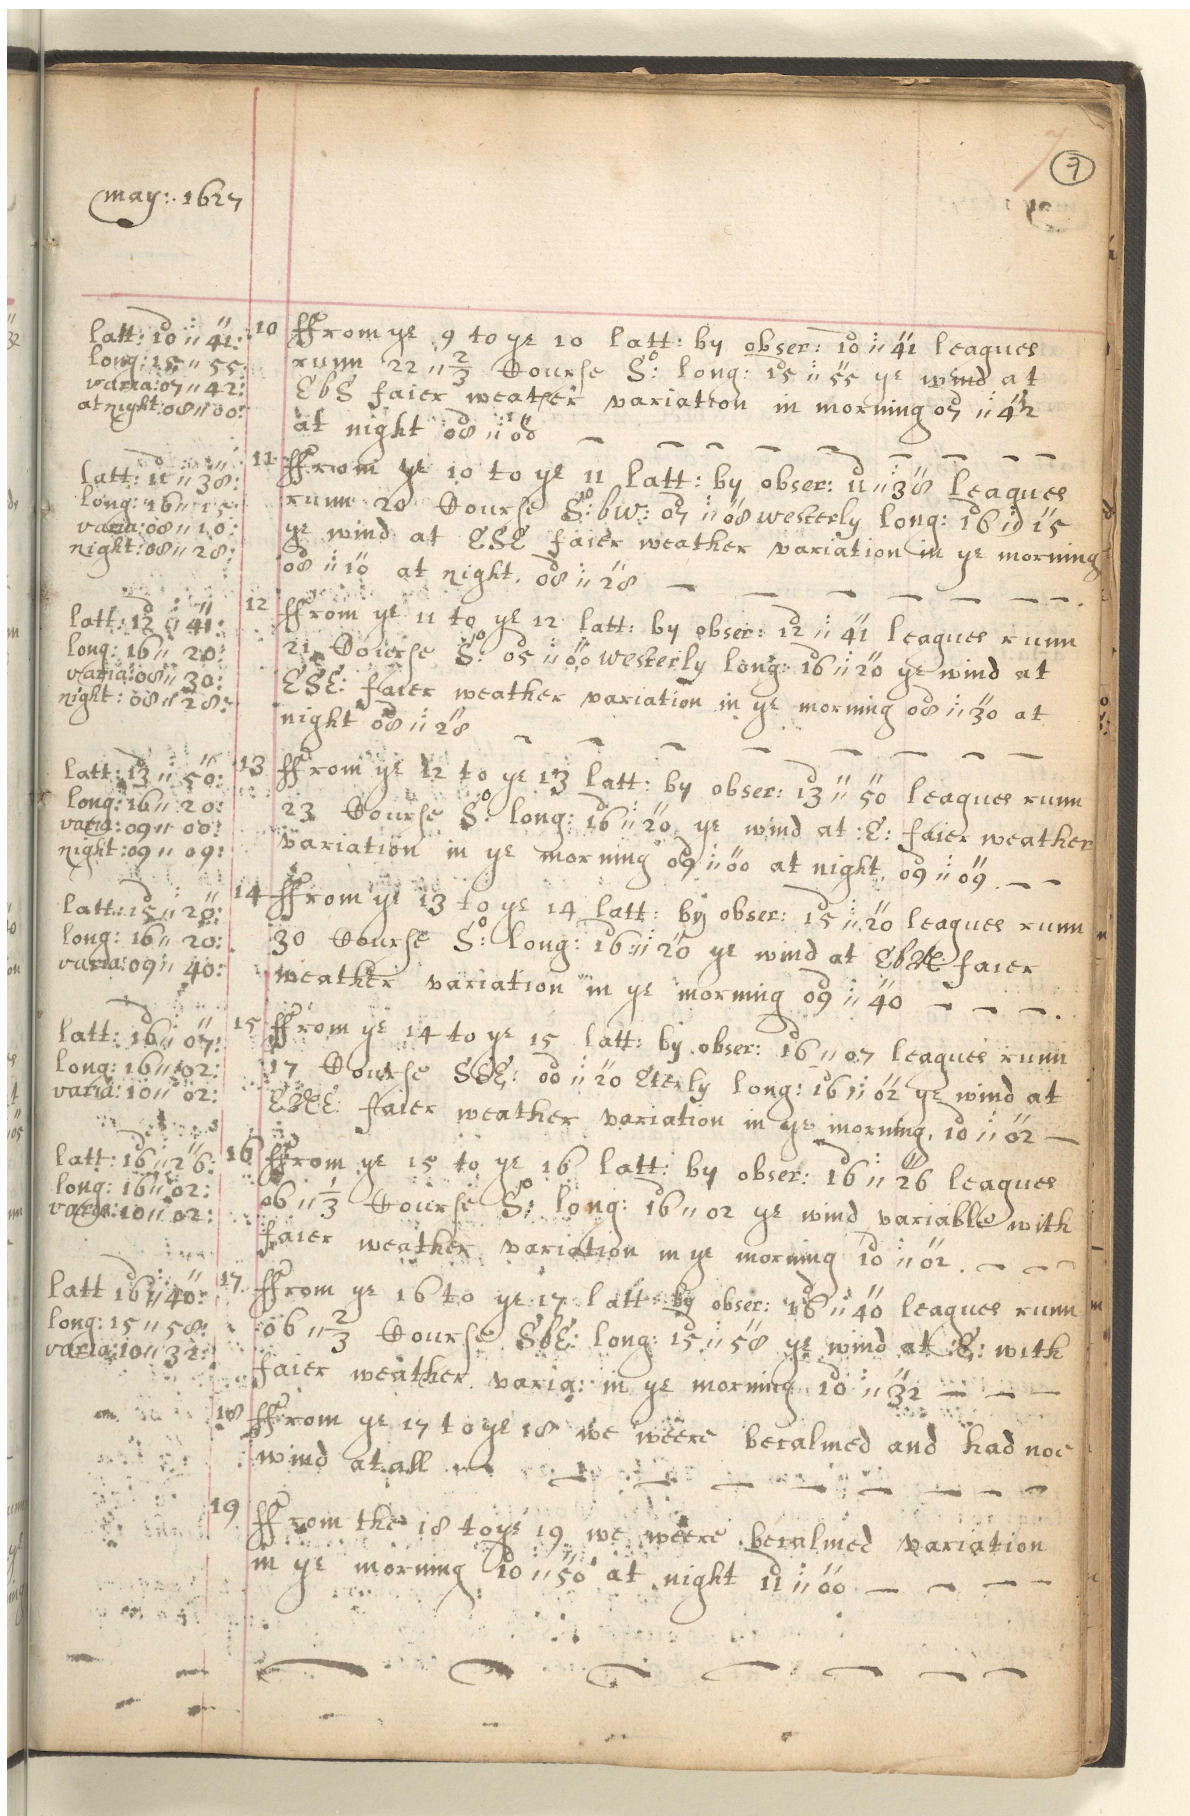 7
7
may: 1627
latt: 10 11 41:
long: 15 11 55:
varia: 07 11 42:
at night: 08 11 00:
10 ffrom ye 9 to ye 10 latt: by obser: 10 11 41 leagues
runn 22 11 2/3 Course So: long: 15 11 55 ye wind at
EbS faier weather variation in morning 07 11 42
at night 08 11 00
latt: 11 11 38:
long: 16 11 15:
varia: 08 11 10:
night: 08 11 28:
11 ffrom ye 10 to ye 11 latt: by obser: 11 11 38 leagues
runn 20 Course S:bW: 07 11 08 westerly long: 16 11 15
ye wind at ESE faier weather variation in ye morning
08 11 10 at night. 08 11 28
latt: 12 11 41:
long: 16 11 20:
varia: 08 11 30:
night: 08 11 28:
12 ffrom ye 11 to ye 12 latt: by obser: 12 11 41 leagues runn
21 Course So: 05 11 00 westerly long: 16 11 20 ye wind at
ESE: faier weather variation in ye morning 08 11 30 at
night 08 11 28
latt: 13 11 50:
long: 16 11 20:
varia: 09 11 00:
night: 09 11 09:
13 ffrom ye 12 to ye 13 latt: by obser: 13 11 50 leagues runn
23 Course So: long: 16 11 20 ye wind at :E: faier weather
variation in ye morning 09 11 00 at night. 09 11 09
latt: 15 11 20:
long: 16 11 20:
varia: 09 11 40:
14 ffrom ye 13 to ye 14 latt: by obser: 15 11 20 leagues runn
30 Course So: long: 16 11 20 ye wind at faier
weather variation in ye morning 09 11 40
latt: 16 11 07:
long: 16 11 02:
varia: 10 11 02:
15 ffrom ye 14 to ye 15 latt: by obser: 16 11 07 leagues runn
17 Course SbE: 00 11 20 Eterly long: 16 11 02 ye wind at
faier weather variation in ye morning. 10 11 02
latt: 16 11 26:
long: 16 11 02:
varia: 10 11 02:
16 ffrom ye 15 to ye 16 latt: by obser: 16 11 26 leagues
06 11 1/3 Course So: long: 16 11 02 ye wind variable with
faier weather variation in ye morning 10 11 02.
latt 16 11 40:
long: 15 11 58:
varia: 10 11 32:
17 ffrom ye 16 to ye 17 latt: by obser: 16 11 40 leagues runn
06 11 2/3 Course SbE: long: 15 11 58 ye wind at :E: with
faier weather varia: in ye morning 10 11 32
18 ffrom ye 17 to ye 18 we weere becalmed and had noe
wind at all
19 ffrom the 18 to ye 19 we weere becalmed variation
in ye morning 10 11 50 at night 11 11 00